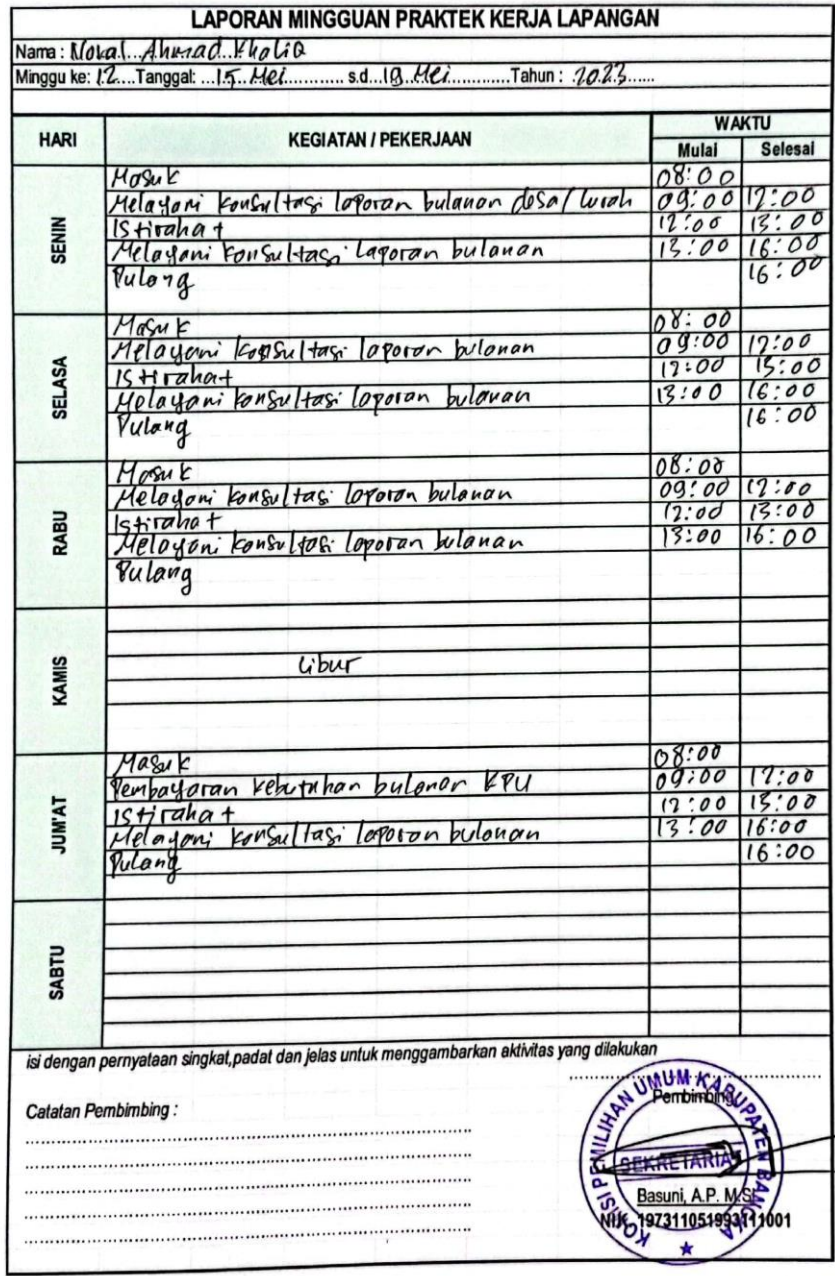 LAPORAN MINGGUAN PRAKTEK KERJA LAPANGAN
Nama : Noval Ahmad Kholiq
Minggu ke: 12 Tanggal: 15 Mei s.d 19 Mei Tahun : 2023
HARI KEGIATAN / PEKERJAAN WAKTU
Mulai Selesai
SENIN
Masuk 08:00
Melayani konsultasi laporan bulanan desa/lurah 09:00 12:00
Istirahat 12:00 13:00
Melayani konsultasi laporan bulanan 13:00 16:00
Pulang 16:00
SELASA
Masuk 08:00
Melayani konsultasi laporan bulanan 09:00 12:00
Istirahat 12:00 13:00
Melayani konsultasi laporan bulanan 13:00 16:00
Pulang 16:00
RABU
Masuk 08:00
Melayani konsultasi laporan bulanan 09:00 12:00
Istirahat 12:00 13:00
Melayani konsultasi laporan bulanan 13:00 16:00
Pulang
KAMIS
Libur
JUM'AT
Masuk 08:00
Pembayaran kebutuhan bulanan KPU 09:00 12:00
Istirahat 12:00 13:00
Melayani konsultasi laporan bulanan 13:00 16:00
Pulang 16:00
SABTU
isi dengan pernyataan singkat,padat dan jelas untuk menggambarkan aktivitas yang dilakukan
Catatan Pembimbing :
Pembimbing
KOMISI PEMILIHAN UMUM KABUPATEN BANGKA
SEKRETARIAT
Basuni, A.P. M.Si
NIK. 197311051993111001